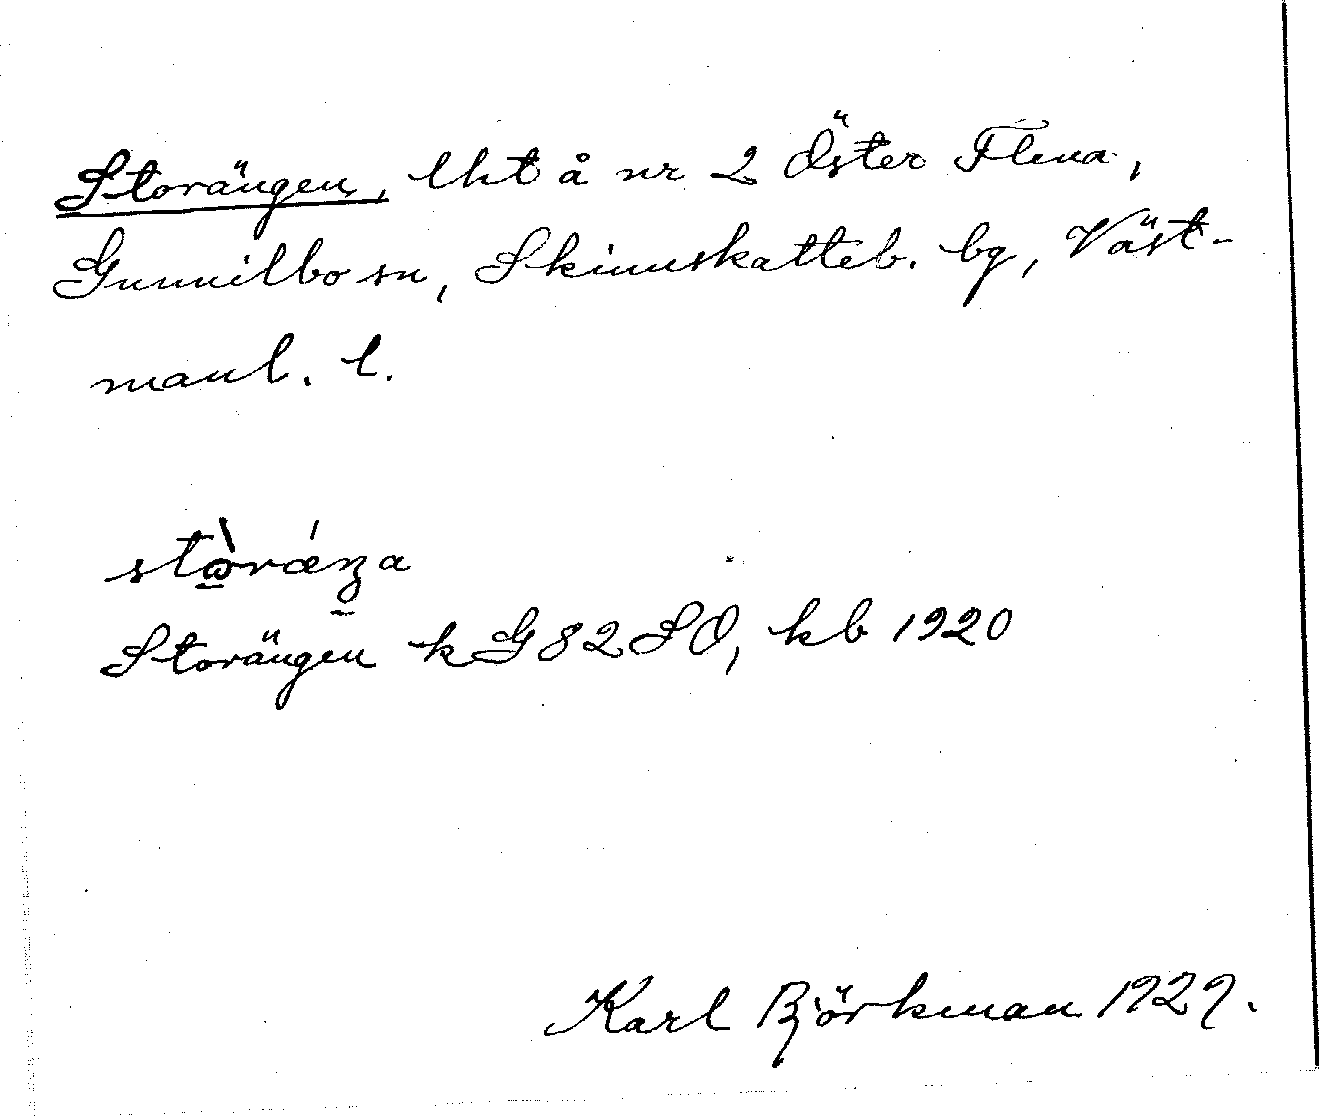 Storängen, lht å nr 2 Öster Flena,
Gunnilbo sn, Skinnskatteb. bg, Väst-
manl. l.
Storängen kG82SO, kb 1920
Karl Björkman 1929.